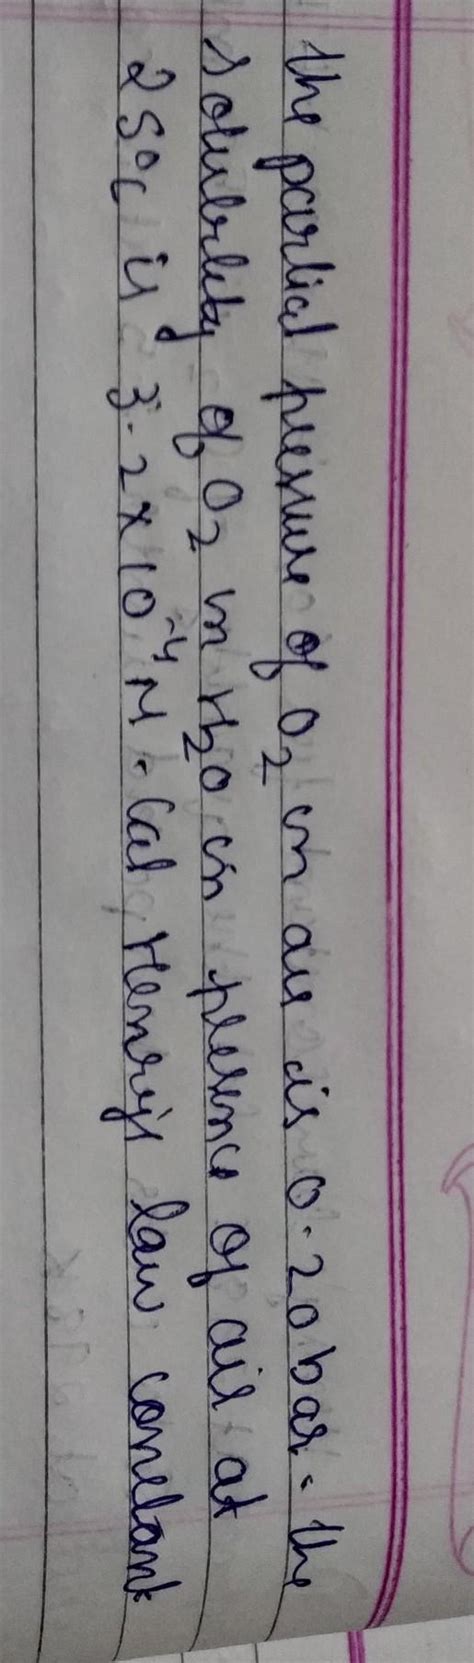 the partial pressure of O2 in air is 0.20 bar. the
solubility of O2 in H2O in presence of air at
25°C is 3.2x10⁻⁴ M. Cal Henry's law constant